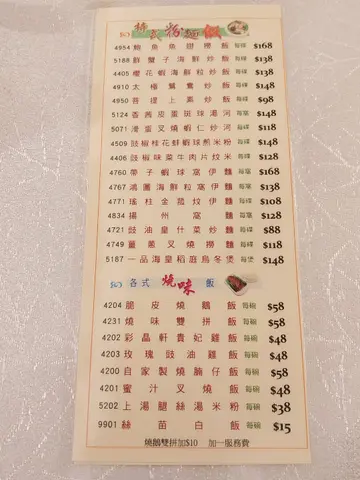 精武粉麵飯
4954 鮑魚魚甜撈飯 每碟 $168
5188 鮮蟹子海鮮炒飯 每碟 $138
4405 櫻花蝦海鮮粒炒飯 每碟 $138
4910 太極鴛鴦炒飯 每碟 $148
4950 菩提上素炒飯 每碟 $98
5124 香茜皮蛋斑球湯河 每窩 $148
5071 滑蛋叉燒蝦仁炒河 每碟 $118
4509 豉椒桂花蚌蝦球煎米粉 每碟 $148
4406 豉椒味菜牛肉片炆米 每碟 $128
4760 帶子蝦球窩伊麵 每窩 $168
4767 鴻圖海鮮粒窩伊麵 每窩 $138
4771 瑤柱金菇炆伊麵 每碟 $108
4834 揚州窩麵 每窩 $128
4721 豉油皇什菜炒麵 每碟 $88
4749 薑蔥叉燒撈麵 每碟 $118
5187 一品海皇稻庭烏冬煲 每煲 $148
各式燒味飯
4204 脆皮燒鵝飯 每碗 $58
4231 燒味雙拼飯 每碗 $58
4202 彩晶軒貴妃雞飯 每碗 $48
4203 玫瑰豉油雞飯 每碗 $48
4200 自家製燒腩仔飯 每碗 $58
4201 蜜汁叉燒飯 每碗 $48
5202 上湯腿絲湯米粉 每碗 $38
9901 絲苗白飯 每碗 $15
燒鵝雙拼加$10 加一服務費